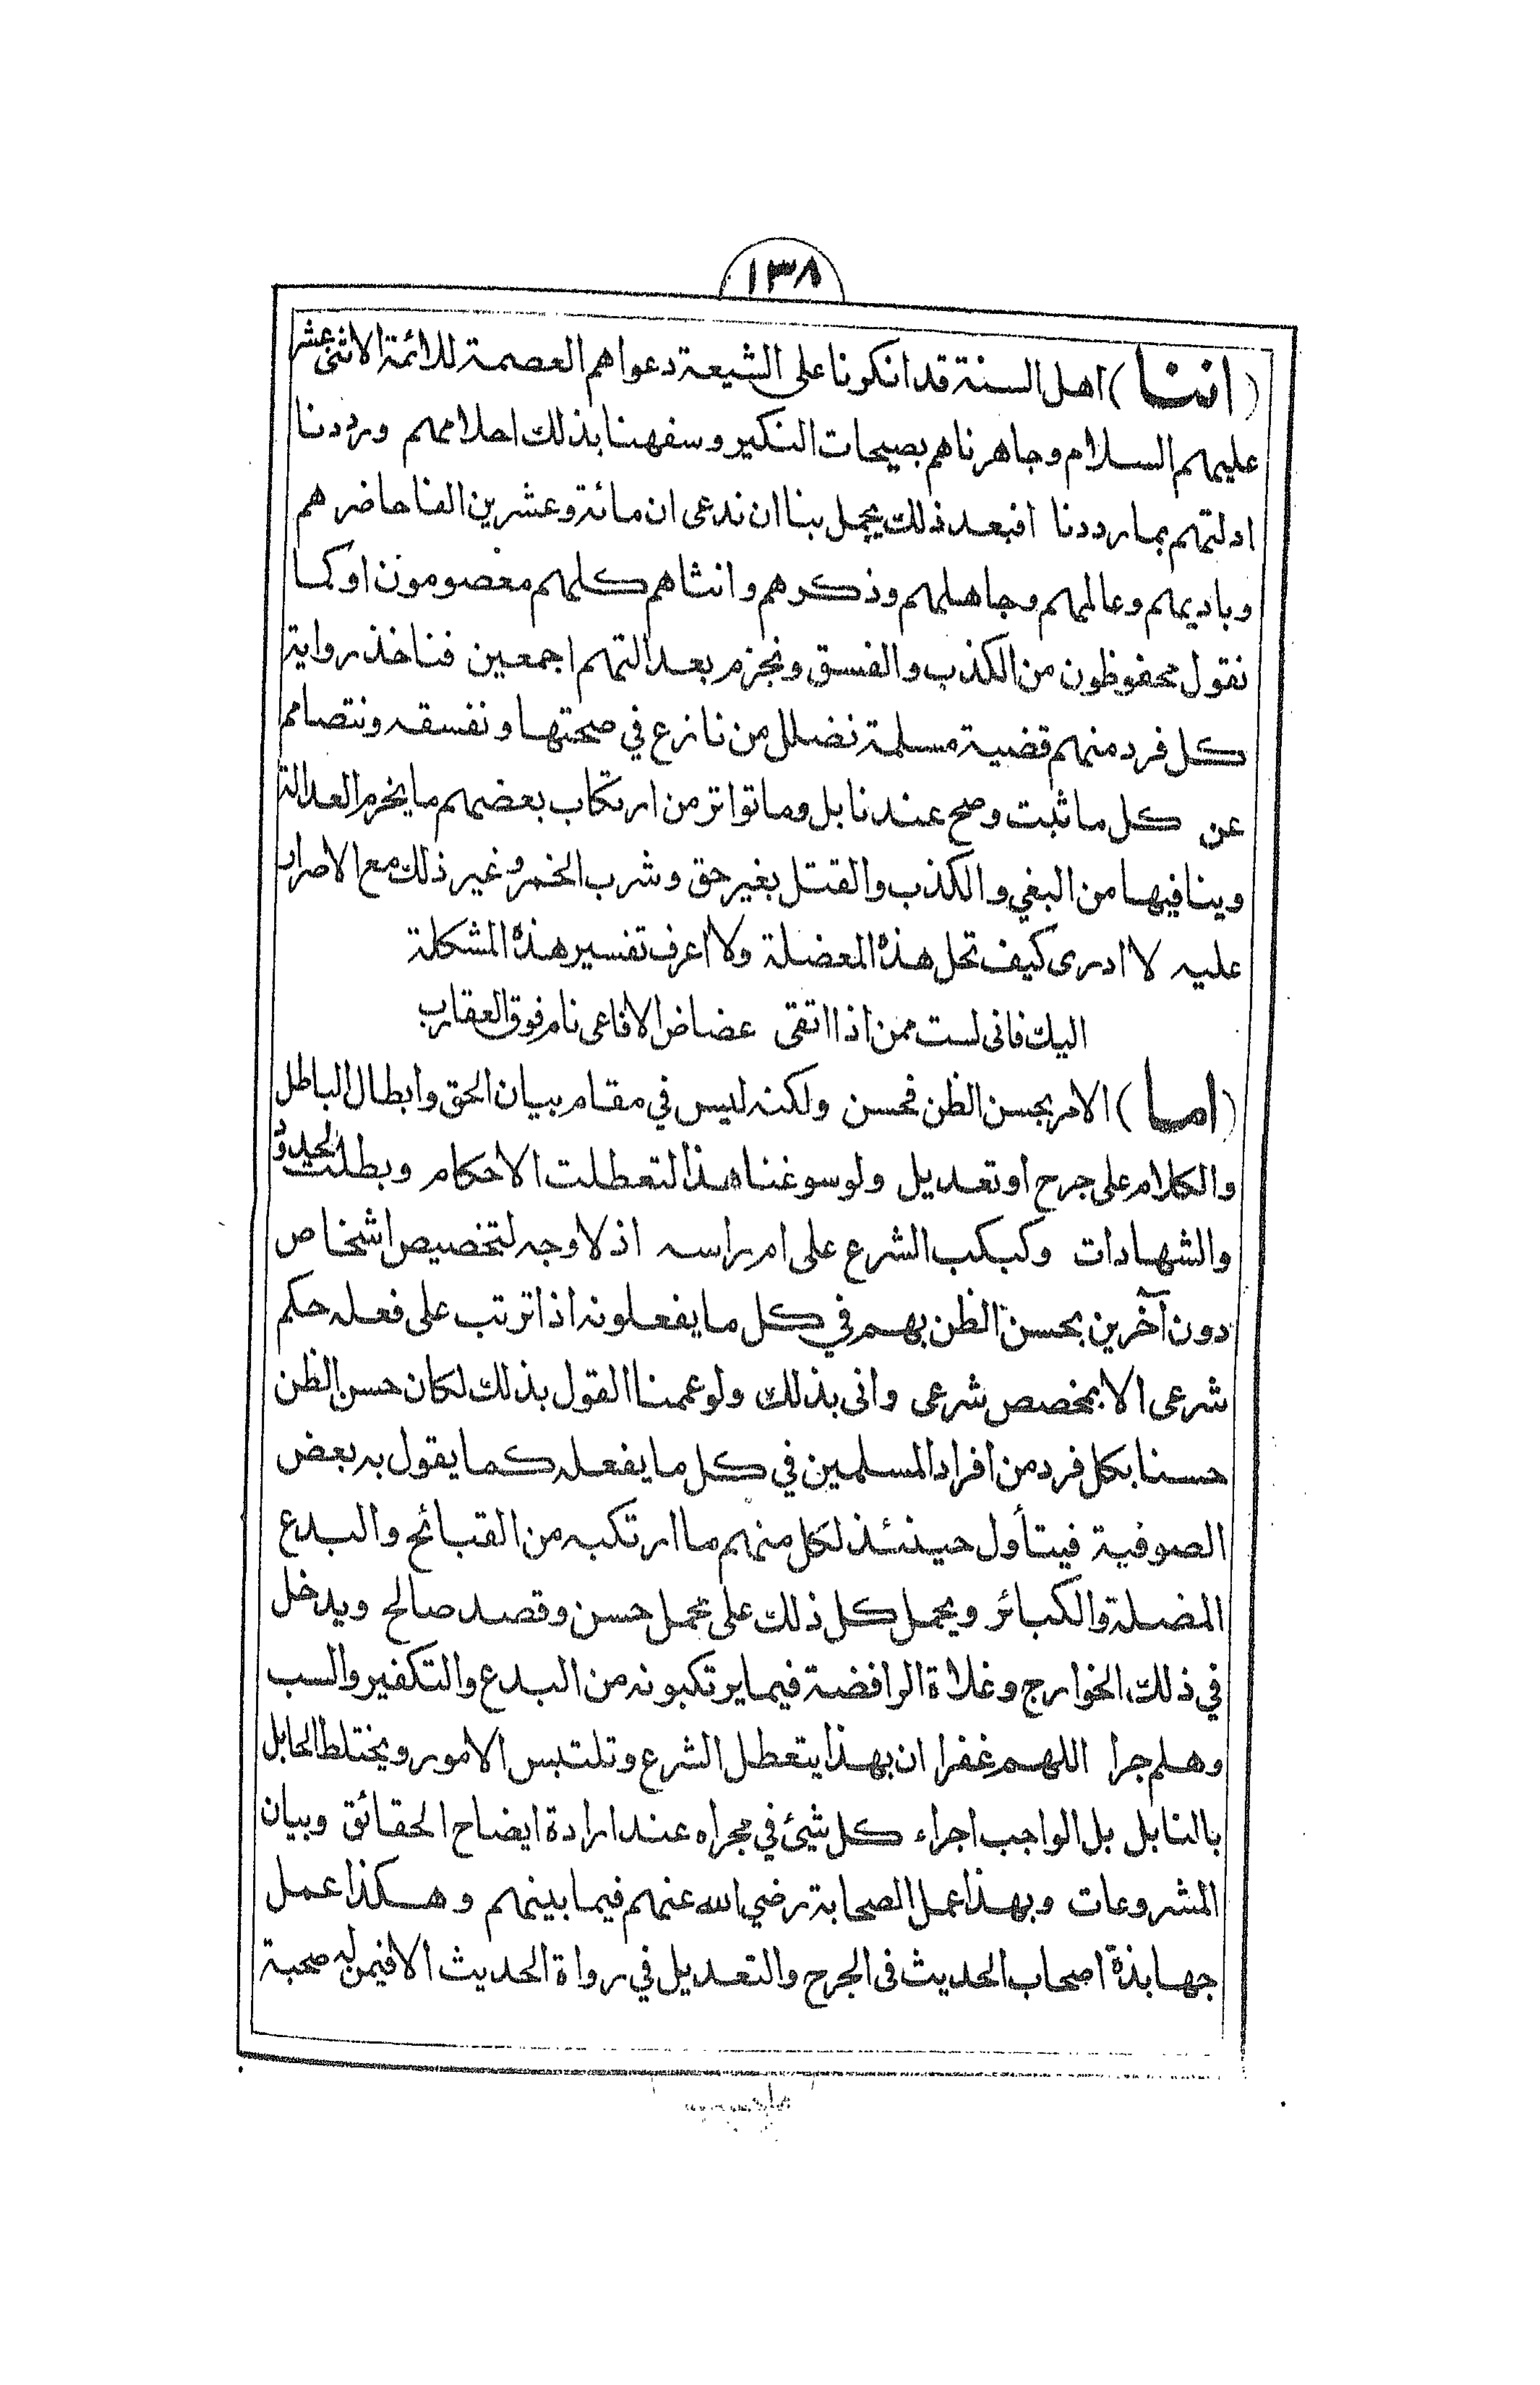 ١٣٨
(اننا) اهل السنة قد انكرنا على الشيعة دعواهم العصمة للائمة الاثنى عشر
عليهم السلام وجاهرناهم بصيحات النكير وسفهنا بذلك احلامهم ورددنا
ادلتهم بما رددنا افبعد ذلك يجمل بنا ان ندعى ان مائة وعشرين الفا حاضرهم
وباديهم وعالمهم وجاهلهم وذكرهم وانثاهم كلهم معصومون او كما
نقول محفوظون من الكذب والفسق ونجزم بعدالتهم اجمعين فناخذ رواية
كل فرد منهم قضية مسلمة نضلل من نازع في صحتها ونفسقه ونتصامم
عن كل ما ثبت وصح عندنا بل وما تواتر من ارتكاب بعضهم ما يخرم العدالة
وينافيها من البغي والكذب والقتل بغير حق وشرب الخمر وغير ذلك مع الاصرار
عليه لا ادرى كيف تحل هذه المعضلة ولا اعرف تفسير هذه المشكلة
اليك فانى لست ممن اذا اتقى عضاض الافاعى نام فوق العقارب
(اما) الامر بحسن الظن فحسن ولكنه ليس في مقام بيان الحق وابطال الباطل
والكلام على جرح او تعديل ولو سوغنا هذا لتعطلت الاحكام وبطلت الحدود
والشهادات وكبكب الشرع على ام راسه اذ لا وجه لتخصيص اشخاص
دون آخرين بحسن الظن بهم في كل ما يفعلونه اذا ترتب على فعله حكم
شرعى الا بمخصص شرعى وانى بذلك ولو عممنا القول بذلك لكان حسن الظن
حسنا بكل فرد من افراد المسلمين في كل ما يفعله كما يقول به بعض
الصوفية فيتأول حينئذ لكل منهم ما ارتكبه من القبائح والبدع
المضلة والكبائر ويحمل كل ذلك على محمل حسن وقصد صالح ويدخل
في ذلك الخوارج وغلاة الرافضة فيما يرتكبونه من البدع والتكفير والسب
وهلم جرا اللهم غفرا ان بهذا يتعطل الشرع وتلتبس الامور ويختلط الحابل
بالنابل بل الواجب اجراء كل شيئ في مجراه عند ارادة ايضاح الحقائق وبيان
المشروعات وبهذا عمل الصحابة رضي الله عنهم فيما بينهم وهكذا عمل
جهابذة اصحاب الحديث فى الجرح والتعديل في رواة الحديث الا فيمن له صحبة